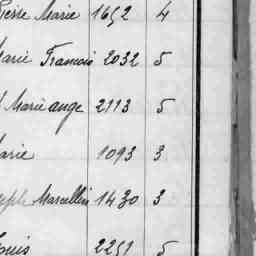 Pierre Marie 1652 4
Marie François 2032 5
Marie ange 2113 5
Marie 1093 3
Joseph Marcellin 1430 3
Louis 2251 5